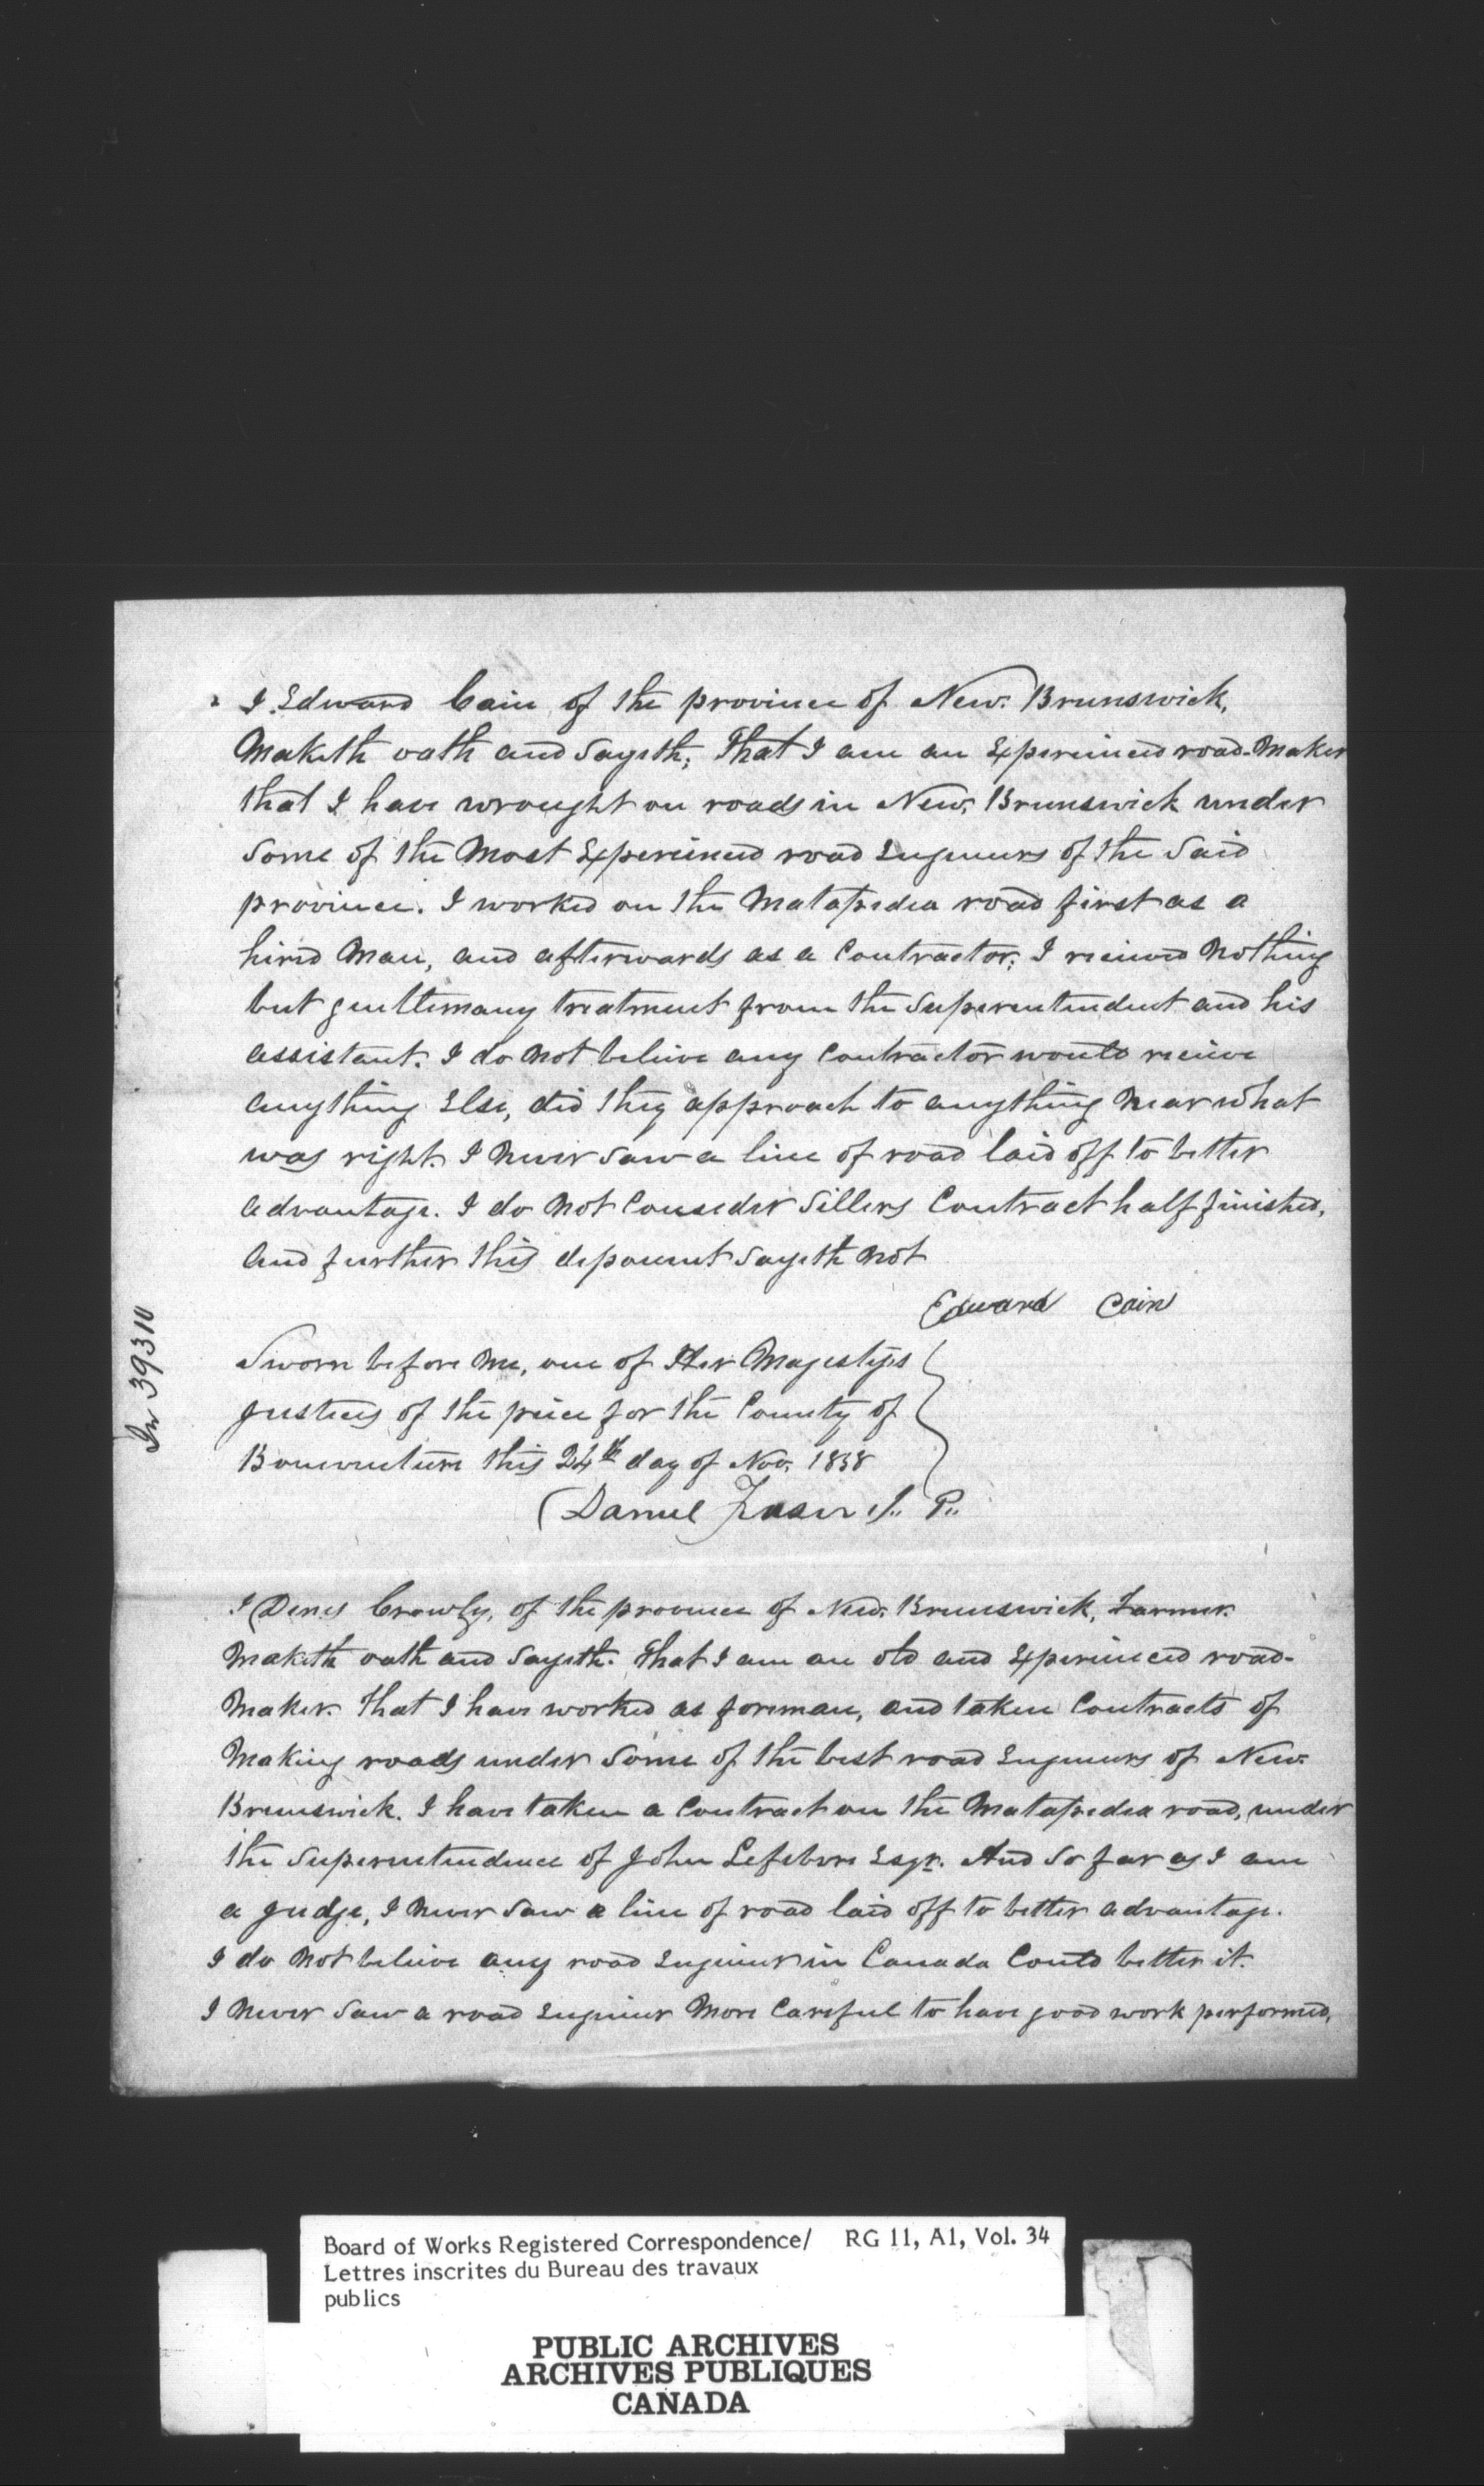 I Edward Cain of the province of New. Brunswick,
Maketh oath and Sayeth; That I am an Experienced road-Maker
that I have wrought on roads in New, Brunswick under
Some of the Most Experienced road Engineers of the Said
province. I worked on the Matapedea road first as a
hired Man, and afterwards as a Contractor; I recieved Nothing
but gentlemany treatment from the Superentendent and his
assistant. I do Not believe any Contractor would recieve
anything Else, did they approach to anything Near what
was right. I Never Saw a line of road laid off to better
advantage. I do Not Conseder Sillers Contract half finished,
And further this deponent Sayeth Not
Edward Cain
Sworn before Me, one of Her Magestyes
Justices of the peice for the County of
Boneventure this 24th day of Nov, 1858
Daniel Fraser J.. P..
I Denes Crowly, of the province of New. Brunswick, Farmer.
Maketh oath and Sayeth. That I am an old and Experienced road-
Maker. That I have worked as foreman, and taken Contracts of
Making roads under Some of the best road Engineers of New.
Brunswick. I have taken a Contract on the Matapedea road, under
the Superentendence of John Lefebvre Esqr. And So far as I am
a judge, I Never Saw a line of road laid off to better advantage.
I do Not believe any road Engineer in Canada Could better it.
I Never Saw a road Engineer More Careful to have good work performed,
In 39310
Board of Works Registered Correspondence/ RG 11, A1, Vol. 34
Lettres inscrites du Bureau des travaux
publics
PUBLIC ARCHIVES
ARCHIVES PUBLIQUES
CANADA